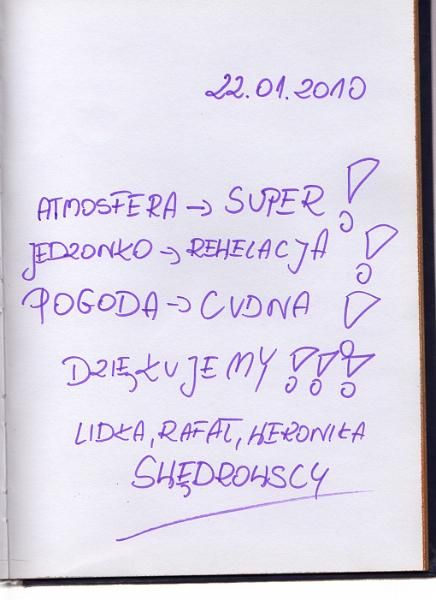 22.01.2010
ATMOSFERA → SUPER!
JEDZONKO → REWELACJA!
POGODA → CUDNA!
DZIĘKUJEMY!!!
LIDKA, RAFAŁ, WERONIKA
SWĘDROWSCY